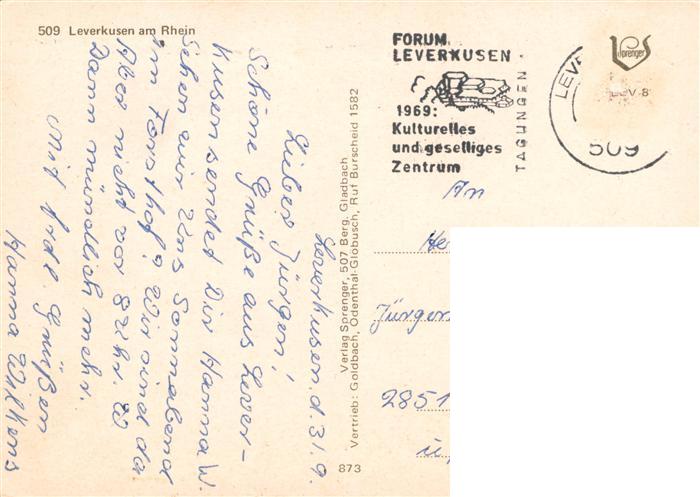 509 Leverkusen am Rhein
FORUM
LEVERKUSEN
1969:
Kulturelles
und geselliges
Zentrum
TAGUNGEN
LEV
509
Sprenger
LEV-8
Leverkusen, d. 31.9.
Lieber Jürgen!
Schöne Grüße aus Lever-
kusen sendet Dir Hanna W.
Sehen wir uns Sonnabend
im Forsthof? Wir sind da
Aber nicht vor 8 Uhr.
Dann mündlich mehr.
Mit frdl. Grüßen
Hanna Wilkens
Verlag Sprenger, 507 Berg. Gladbach
Vertrieb: Goldbach, Odenthal-Globusch, Ruf Burscheid 1582
873
An
He
Jürgen
2851